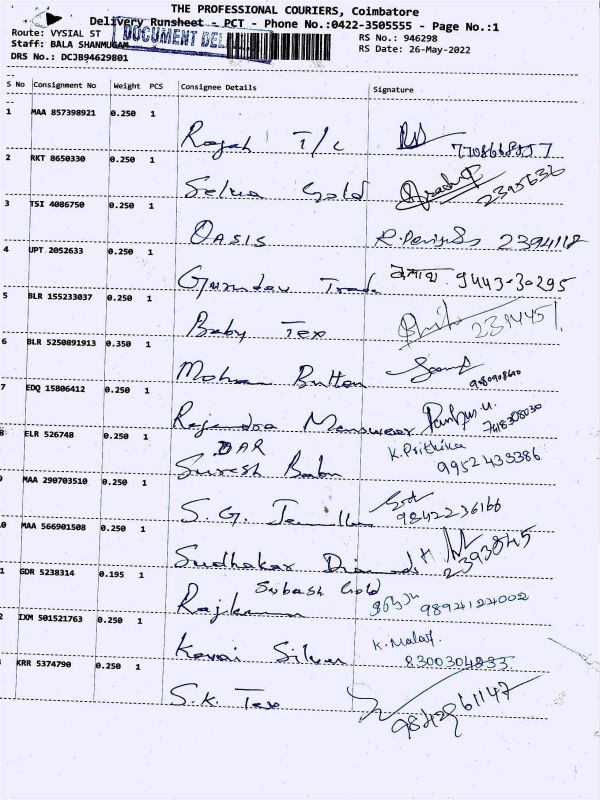 THE PROFESSIONAL COURIERS, Coimbatore
Delivery Runsheet - PCT - Phone No.:0422-3505555 - Page No.:1
Route: VYSIAL ST RS No.: 946298
Staff: BALA SHANMUGAM RS Date: 26-May-2022
DOCUMENT DEL
DRS No.: DCJB94629801
S No Consignment No Weight PCS Consignee Details Signature
1 MAA 857398921 0.250 1
Rajesh T/C
2 RKT 8650330 0.250 1
Selva Gold 2395636
3 TSI 4086750 0.250 1
OASIS 2394118
4 UPT 2052633 0.250 1
Gurudev Trade 9443-30295
5 BLR 155233037 0.250 1
Baby Tex 2394451
6 BLR 5250891913 0.350 1
Mohan Button
7 EDQ 15806412 0.250 1
Rajendra 7418308030
8 ELR 526748 0.250 1
DAR K. Prithika
Suresh Babu 9952433386
MAA 290703510 0.250 1
S. G. 9842236166
0 MAA 566901508 0.250 1
Sudhakar Diamonds 2393845
1 GDR 5238314 0.195 1
Subash Gold
Rajkumar 9894124002
2 IXM 501521763 0.250 1
Kovai Silver K. Malar
8300304833
KRR 5374790 0.250 1
S.K. Tex 9842961147